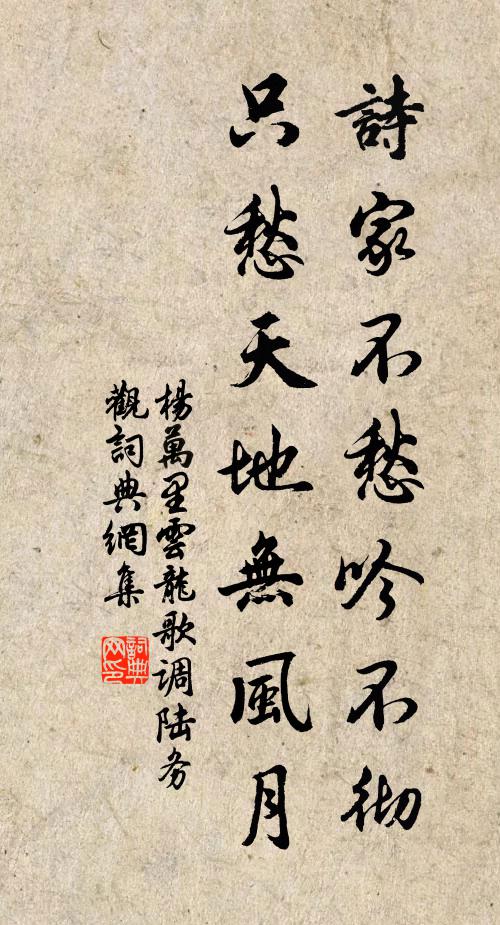 詩家不愁吟不彻
只愁天地無風月
楊萬里雲龍歌调陆务
觀词典網集
詞典
网印